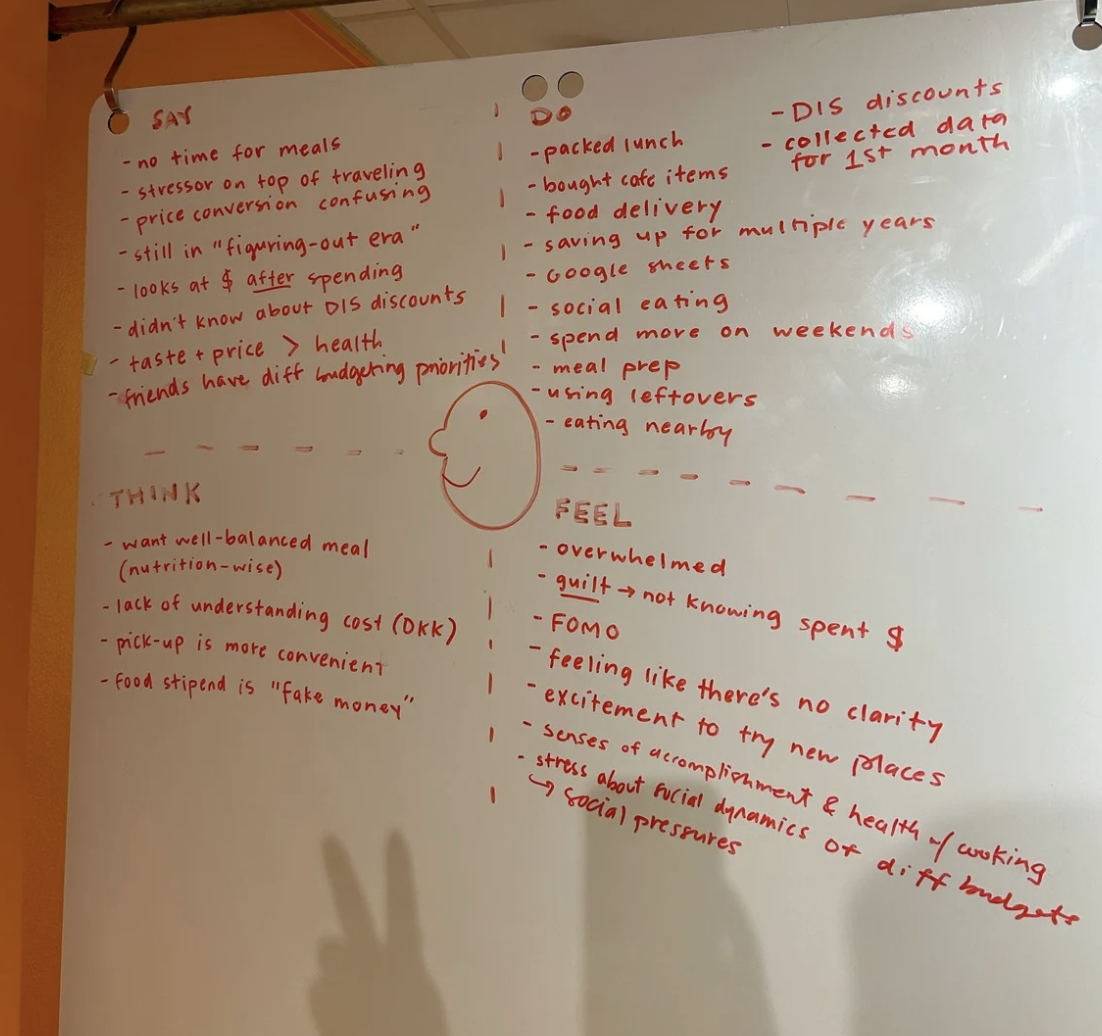 SAY
- no time for meals
- stressor on top of traveling
- price conversion confusing
- still in "figuring-out era"
- looks at $ after spending
- didn't know about DIS discounts
- taste + price > health
- friends have diff budgeting priorities
DO
- packed lunch
- bought cafe items
- food delivery
- saving up for multiple years
- Google sheets
- social eating
- spend more on weekends
- meal prep
- using leftovers
- eating nearby
- DIS discounts
- collected data
for 1st month
THINK
- want well-balanced meal
(nutrition-wise)
- lack of understanding cost (DKK)
- pick-up is more convenient
- food stipend is "fake money"
FEEL
- overwhelmed
- guilt → not knowing spent $
- FOMO
- feeling like there's no clarity
- excitement to try new places
- senses of accomplishment & health w/ cooking
- stress about social dynamics of diff budgets
↳ social pressures